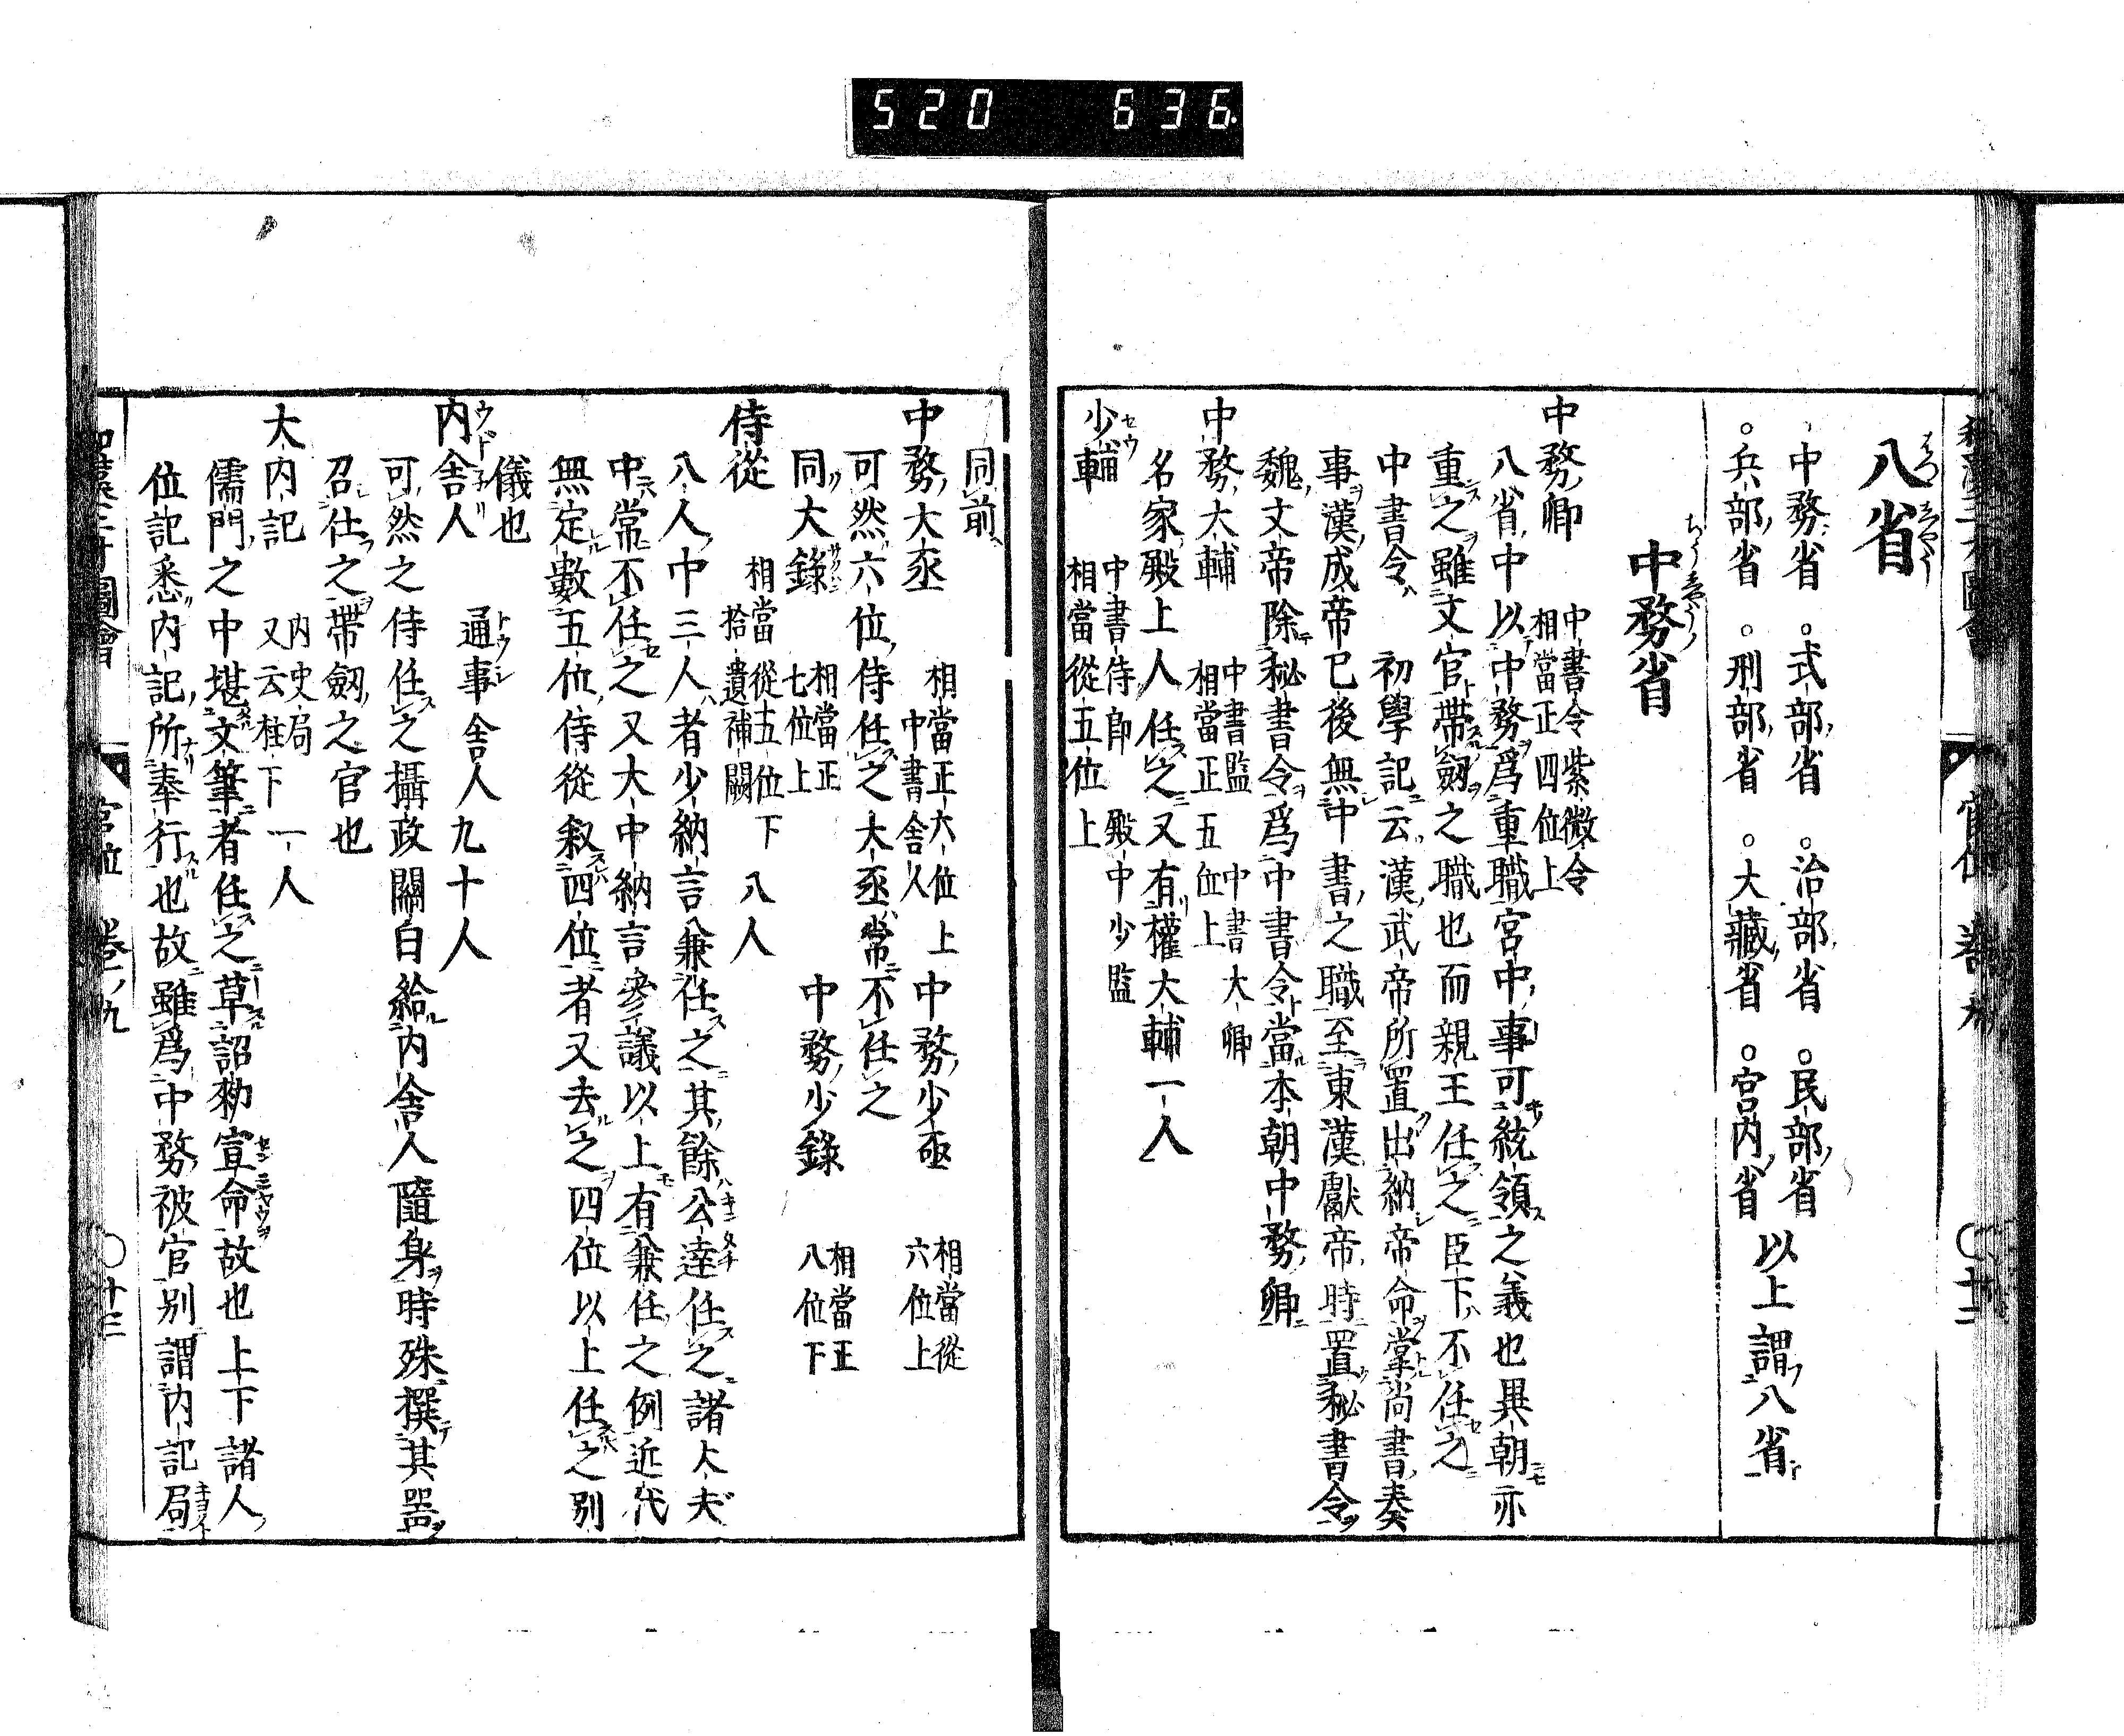 520 636
八省
中務省 ○式部省 ○治部省 ○民部省
○兵部省 ○刑部省 ○大藏省 ○宮内省 以上謂八省
中務省
中務卿 中書令紫微令 相當正四位上
八省中以中務爲重職宮中事可統領之義也異朝亦
重之雖文官帶劔之職也而親王任之臣下不任之
中書令 初學記云漢武帝所置出納帝命掌尚書奏
事漢成帝已後無中書之職至東漢獻帝時置秘書令
魏文帝除秘書令爲中書令當本朝中務卿
中務大輔 中書監 中書大卿 相當正五位上
名家殿上人任之又有權大輔一人
少輔 中書侍郎 殿中少監 相當從五位上
同前
中務大丞 相當正六位上 中書舍人 中務少丞 相當從六位上
可然六位侍任之大丞常不任之
同大錄 相當正七位上 中務少錄 相當正八位下
侍從 相當從五位下 拾遺補闕 八人
八人中三人者少納言兼任之其餘公達任之諸大夫
中常不任之又大中納言參議以上有兼任之例近代
無定數五位侍從叙四位者又去之四位以上任之別
儀也
内舍人 通事舍人九十人
可然之侍任之攝政關白給内舍人隨身時殊撰其器
召仕之帶劔之官也
大内記 内史局 又云柱下 一人
儒門之中堪文筆者任之草詔勅宣命故也上下諸人
位記悉内記所奉行也故雖爲中務被官別謂内記局